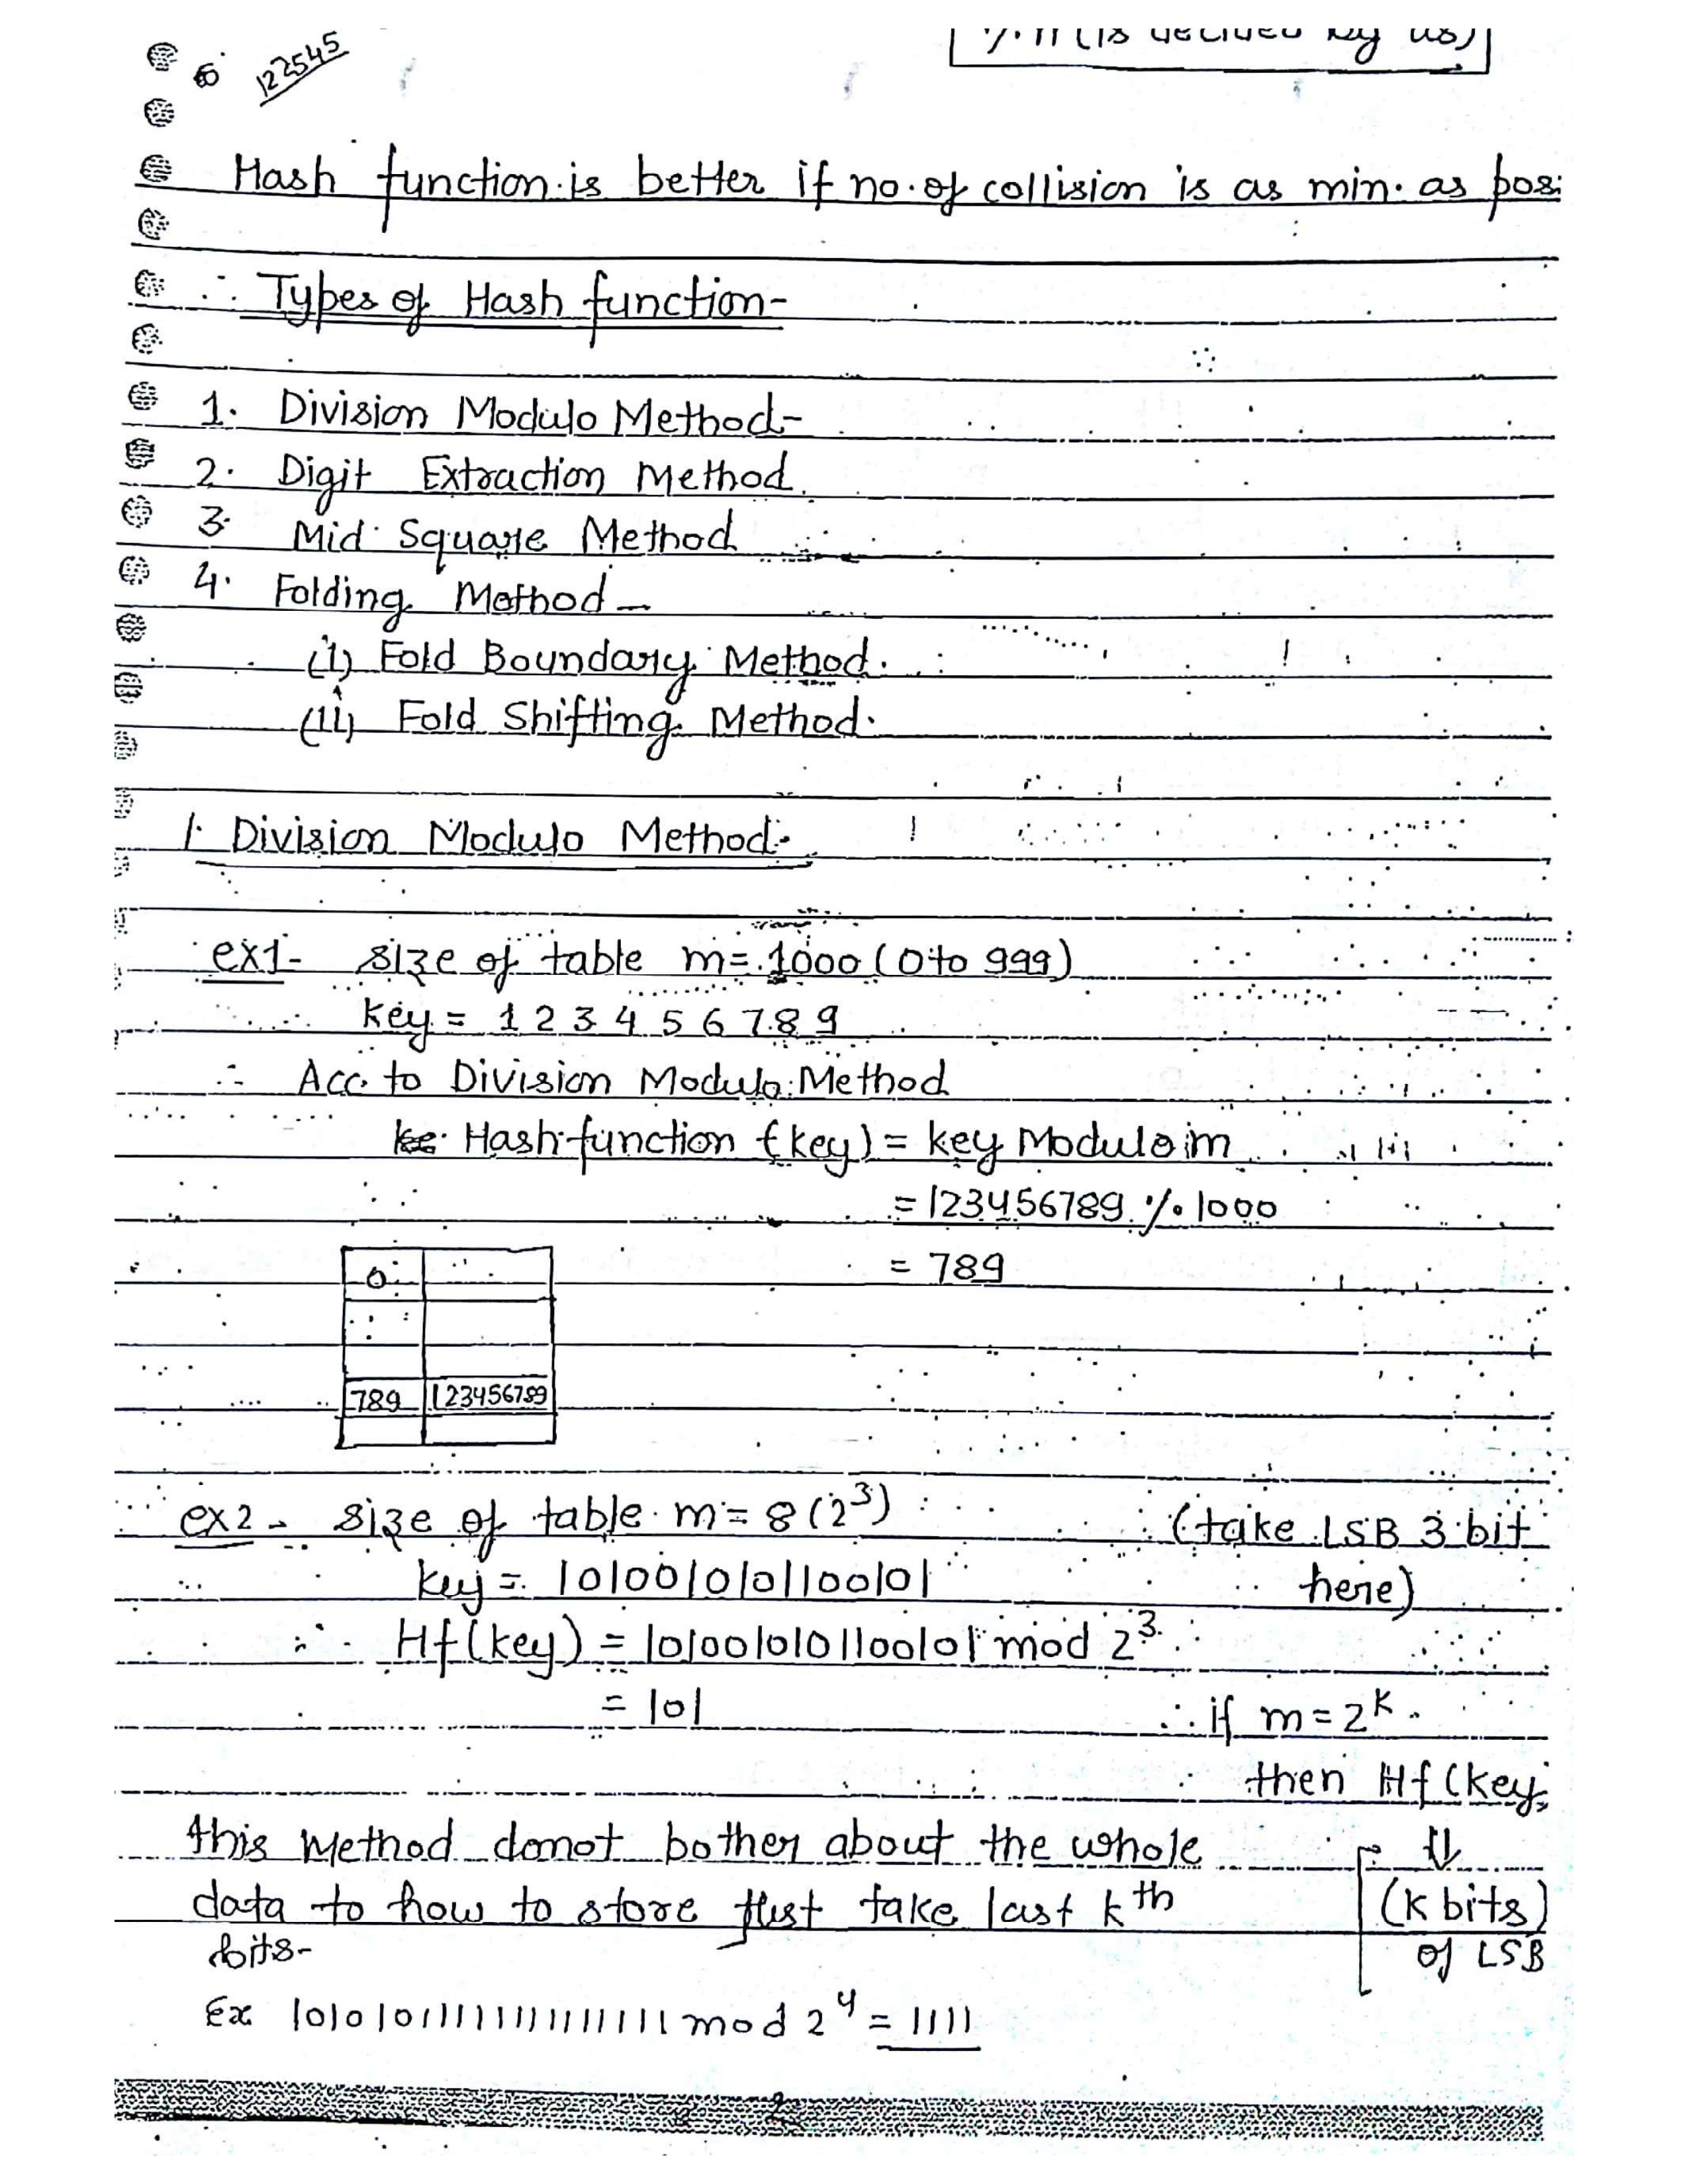 122545
(is decided by us)
Hash function is better if no. of collision is as min. as
∴ Types of Hash function-
1. Division Modulo Method-
2. Digit Extraction Method
3. Mid Square Method
4. Folding Method -
(i) Fold Boundary Method.
(ii) Fold Shifting Method.
1. Division Modulo Method-
ex1- size of table m = 1000 (0 to 999)
key = 1 2 3 4 5 6 7 8 9
∴ Acc. to Division Modulo Method
Hash function (key) = key Modulo m
= 123456789 % 1000
= 789
0
789 123456789
ex2 - size of table m = 8 (2³) (take LSB 3 bit
key = 1010010101100101 here)
∴ Hf(key) = 1010010101100101 mod 2³
= 101 ∴ if m = 2ᴷ
then Hf(key
this Method donot bother about the whole ⇓
data to how to store just take last kᵗʰ (K bits)
bits- of LSB
Ex mod 2⁴ = 1111
2